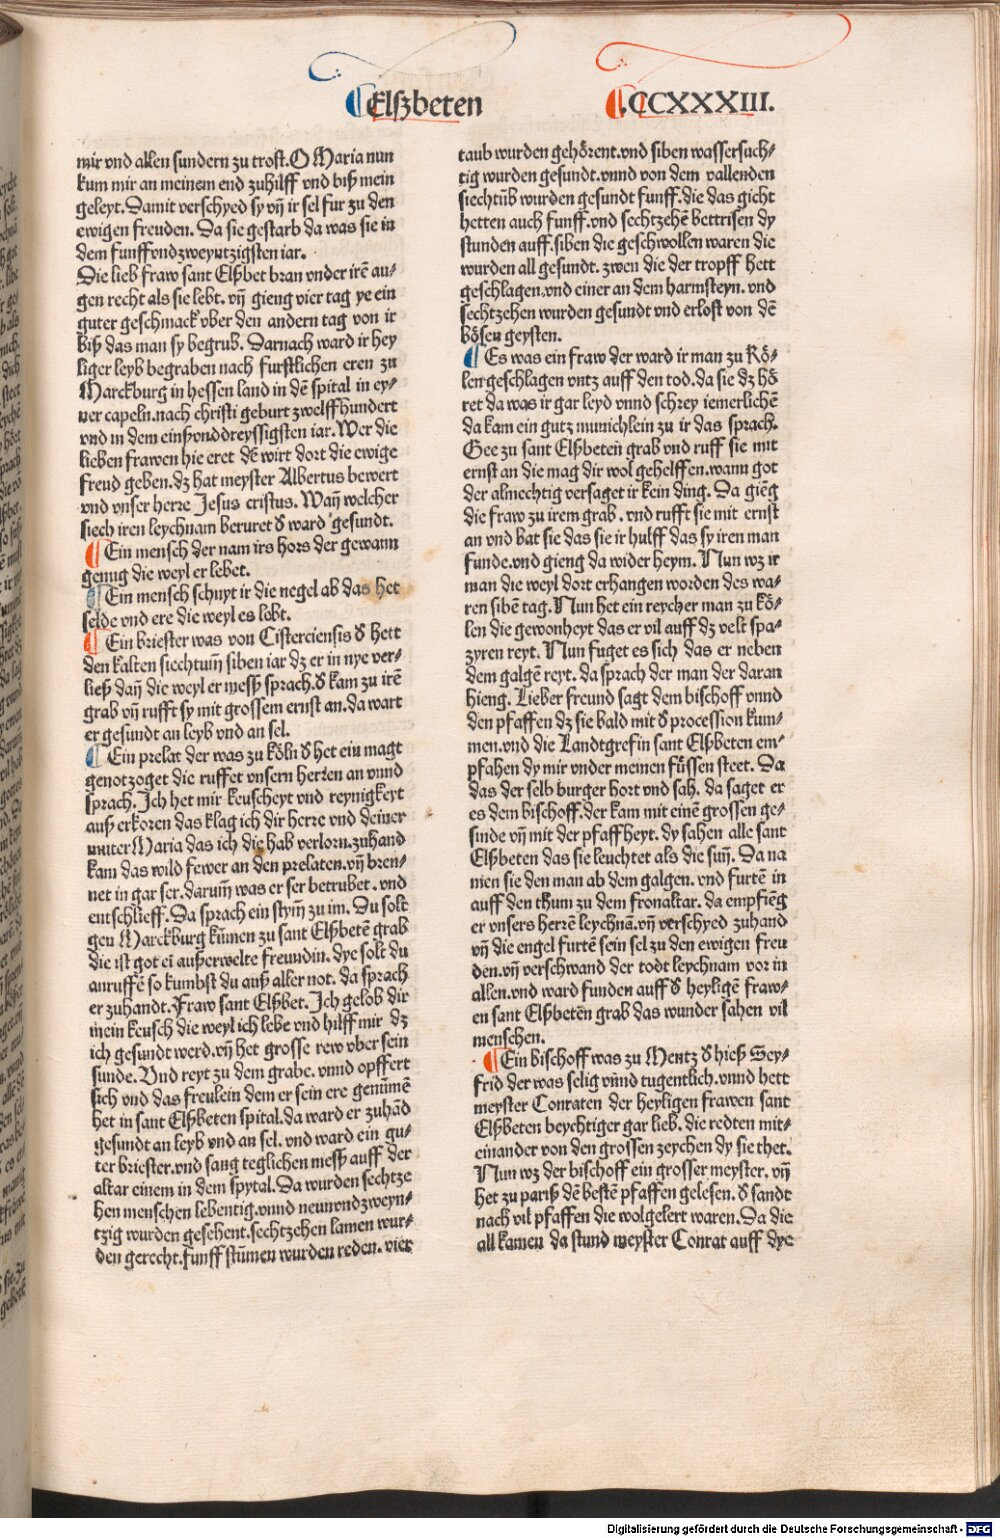 Elßbeten
.CCXXXIII.
mir vnd allen sundern zu trost. O Maria nun
kum mir an meinem end zuhilff vnd biß mein
geleyt. Damit verschyed sy vñ ir sel fur zu den
ewigen freuden. Da sie gestarb da was sie in
dem funffvndzweyntzigsten iar.
Die lieb fraw sant Elßbet bran vnder irē au⸗
gen recht als sie lebt. vñ gieng vier tag ye ein
guter geschmack vber den andern tag von ir
biß das man sy begrub. Darnach ward ir hey
liger leyb begraben nach furstlichen eren zu
Marckburg in hessen land in dē spital in ey⸗
ner capeln. nach christi geburt zwelffhundert
vnd in dem einßvnddreyssigsten iar. Wer die
lieben frawen hie eret dē wirt dort die ewige
freud geben. dz hat meyster Albertus bewert
vnd vnser herre Jesus cristus. Wañ welcher
siech iren leychnam beruret d̕ ward gesundt.
Ein mensch der nam irs hors der gewann
genug die weyl er lebet.
Ein mensch schnyt ir die negel ab das het
selde vnd ere die weyl es lebt.
Ein briester was von Cisterciensis d̕ hett
den kalten siechtum̃ siben iar dz er in nye ver⸗
ließ dañ die weyl er messz sprach. d̕ kam zu irē
grab vñ rufft sy mit grossem ernst an. da wart
er gesundt an leyb vnd an sel.
Ein prelat der was zu köln d̕ het ein magt
genotzoget die ruffet vnsern herren an vnnd
sprach. Ich het mir keuscheyt vnd reynigkeyt
auß erkoren das klag ich dir herre vnd deiner
muter Maria das ich die hab verlorn. zuhand
kam das wild fewer an den prelaten. vñ bren⸗
net in gar ser. darum̃ was er ser betrubet. vnd
entschlieff. Da sprach ein stym̃ zu im. Du solt
gen Marckburg kūmen zu sant Elßbetē grab
die ist got ei außerwelte freundin. dye solt du
anruffē so kumbst du auß aller not. da sprach
er zuhandt. Fraw sant Elßbet. Ich gelob dir
mein keusch die weyl ich lebe vnd hilff mir dz
ich gesundt werd. vñ het grosse rew vber sein
sunde. Vnd reyt zu dem grabe. vnnd opffert
sich vnd das freulein dem er sein ere genūmē
het in sant Elßbeten spital. da ward er zuhād
gesundt an leyb vnd an sel. vnd ward ein gu⸗
ter briester. vnd sang teglichen messz auff der
altar einem in dem spytal. Da wurden sechtze
hen menschen lebentig. vnnd neunvndzweyn⸗
tzig wurden gesehent. sechtzehen lamen wur⸗
den gerecht. funff stūmen wurden reden. vier
taub wurden gehörent. vnd siben wassersuch⸗
tig wurden gesundt. vnnd von dem vallenden
siechtūb wurden gesundt funff. die das gicht
hetten auch funff. vnd sechtzehē bettrisen dy
stunden auff. siben die geschwollen waren die
wurden all gesundt. zwen die der tropff hett
geschlagen. vnd einer an dem harmsteyn. vnd
sechtzehen wurden gesundt vnd erlost von dē
bösen geysten.
Es was ein fraw der ward ir man zu Kö⸗
len geschlagen vntz auff den tod. da sie dz hö
ret da was ir gar leyd vnnd schrey iemerlichē
da kam ein gutz munichlein zu ir das sprach.
Gee zu sant Elßbeten grab vnd ruff sie mit
ernst an die mag dir wol gehelffen. wann got
der almechtig versaget ir kein ding. Da giēg
die fraw zu irem grab. vnd rufft sie mit ernst
an vnd bat sie das sie ir hulff das sy iren man
funde. vnd gieng da wider heym. Nun wz ir
man die weyl dort erhangen worden des wa⸗
ren sibē tag. Nun het ein reycher man zu kö⸗
len die gewonheyt das er vil auff dz velt spa⸗
zyren reyt. Nun fuget es sich das er neben
dem galgē reyt. da sprach der man der daran
hieng. Lieber freund sagt dem bischoff vnnd
den pfaffen dz sie bald mit d̕ procession kum⸗
men. vnd die Landtgrefin sant Elßbeten em⸗
pfahen dy mir vnder meinen füssen steet. Da
das der selb burger hort vnd sah. da saget er
es dem bischoff. der kam mit einē grossen ge⸗
sinde vñ mit der pfaffheyt. dy sahen alle sant
Elßbeten das sie leuchtet als die suñ. Da na
men sie den man ab dem galgen. vnd furtē in
auff den thum zu dem fronaltar. da empfiēg
er vnsers herrē leychnā. vñ verschyed zuhand
vñ die engel furtē sein sel zu den ewigen freu
den. vñ verschwand der todt leychnam vor in
allen. vnd ward funden auff d̕ heyligē fraw⸗
en sant Elßbetēn grab das wunder sahen vil
menschen.
Ein bischoff was zu Mentz d̕ hieß Sey⸗
frid der was selig vnnd tugentlich. vnnd hett
meyster Conraten der heyligen frawen sant
Elßbeten beychtiger gar lieb. die redten mit⸗
einander von den grossen zeychen dy sie thet.
Nun wz der bischoff ein grosser meyster. vñ
het zu pariß dē bestē pfaffen gelesen. d̕ sandt
nach vil pfaffen die wolgelert waren. Da die
all kamen da stund meyster Conrat auff dye
Digitalisierung gefördert durch die Deutsche Forschungsgemeinschaft - DFG